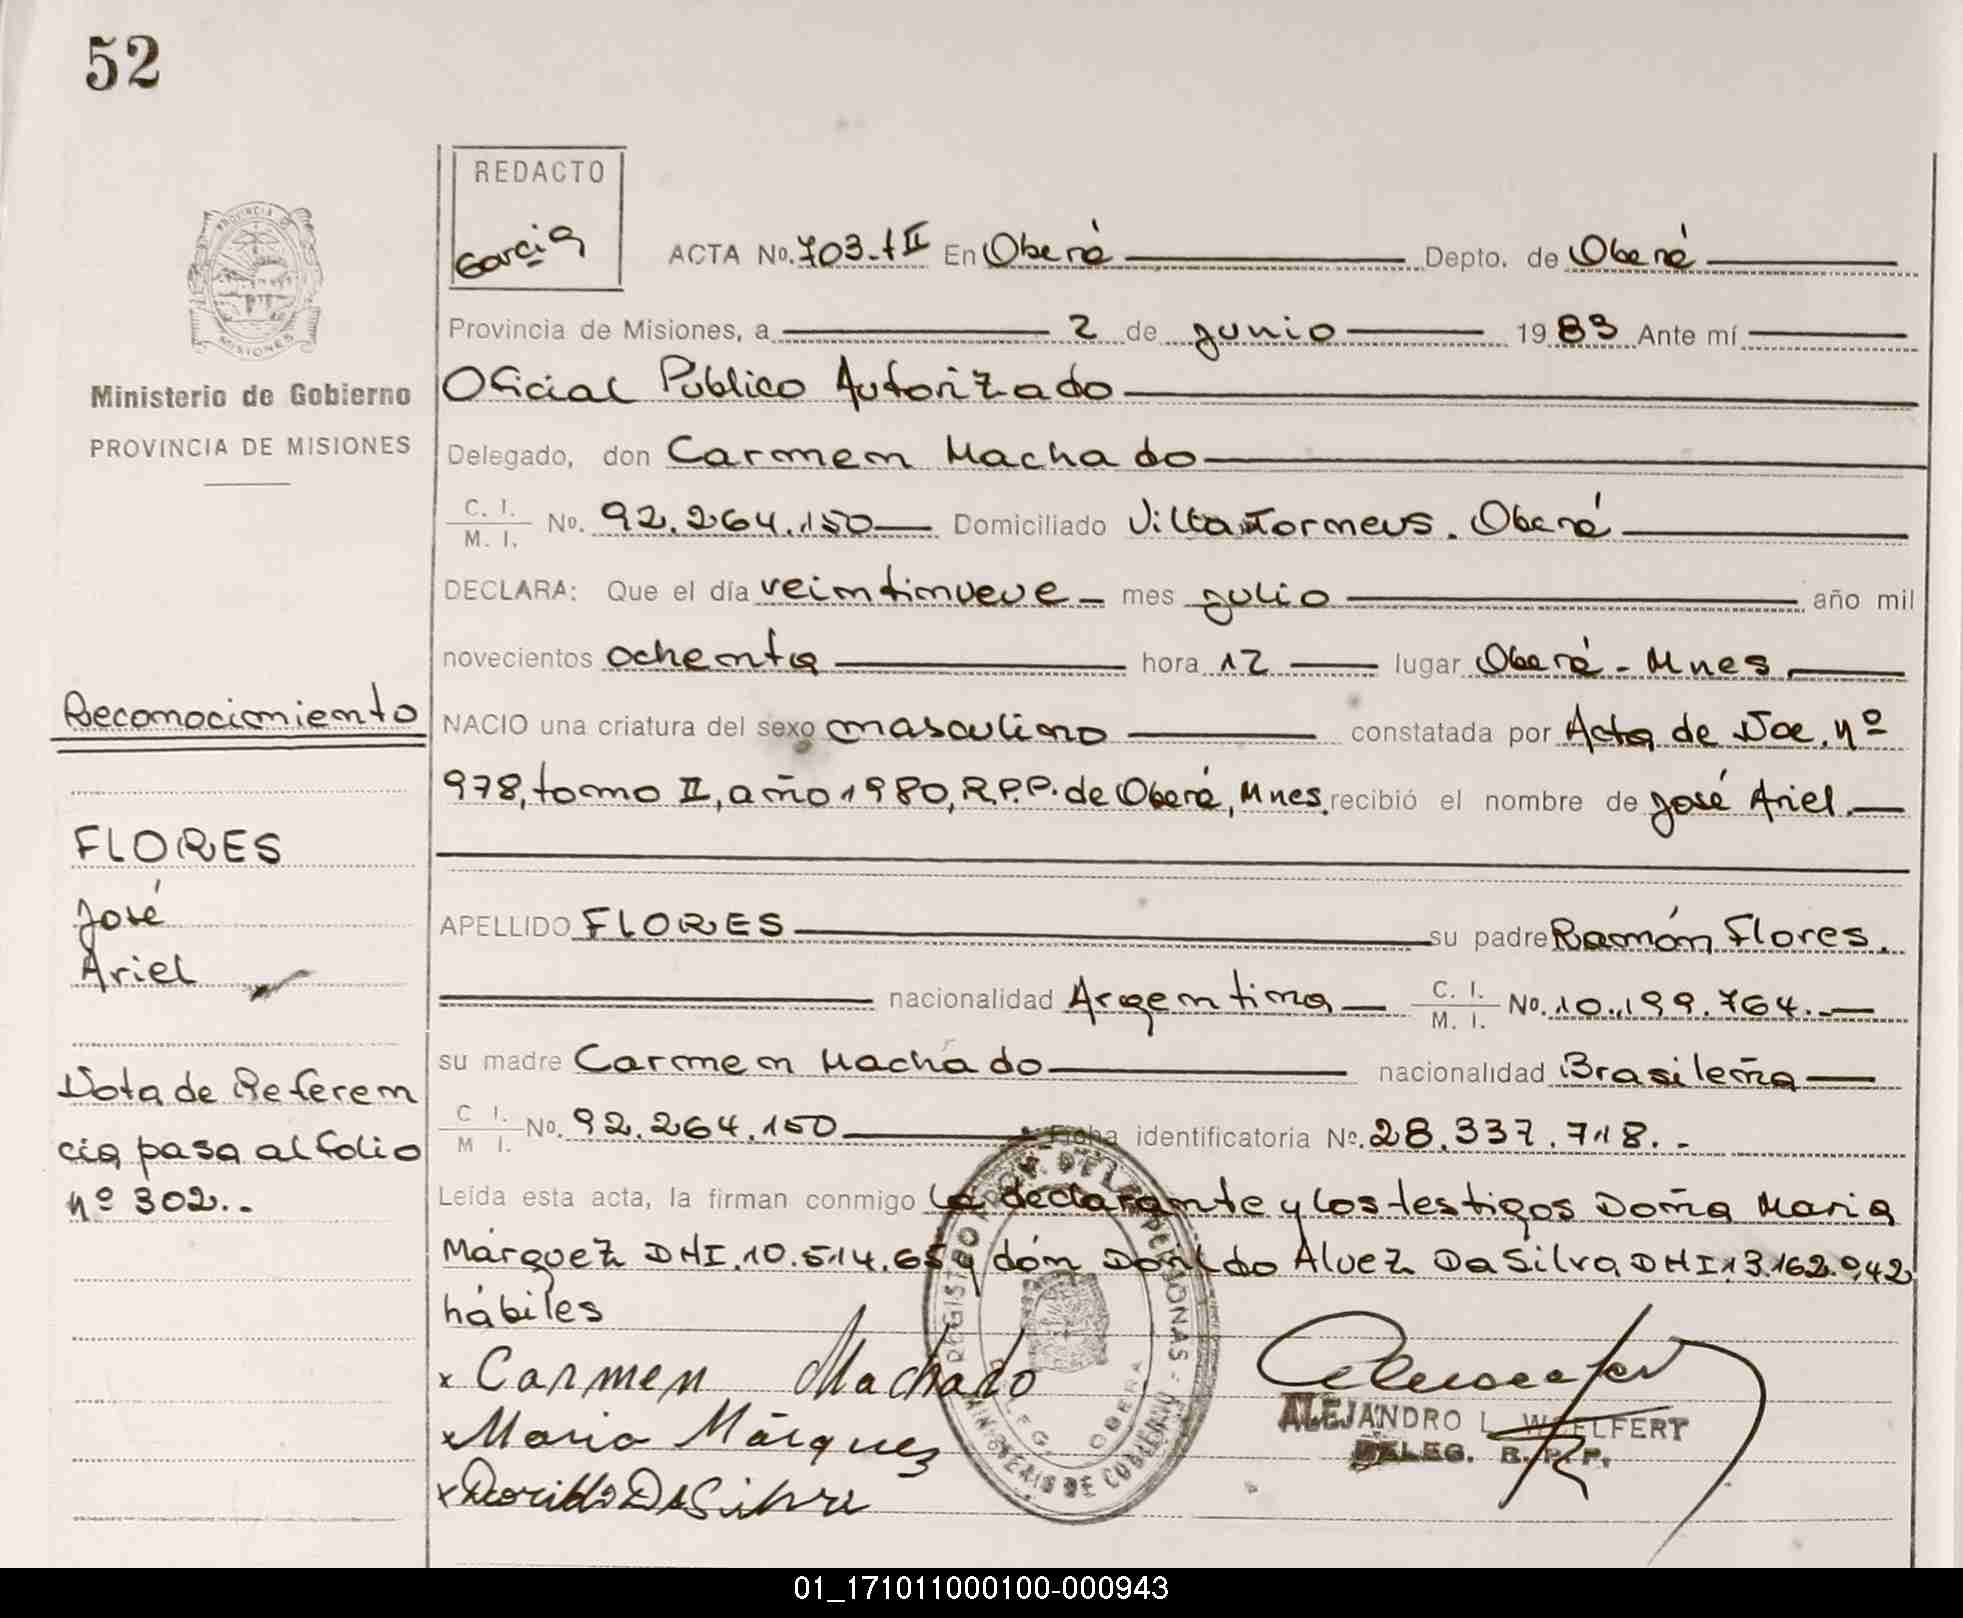 52
REDACTO
Garcia
ACTA No. 703 - t II En Oberá Depto. de Oberá
Provincia de Misiones, a 2 de junio 1983 Ante mí
Oficial Publico Autorizado
Delegado, don Carmen Machado
C. I. / M. I. No. 92.264.150 Domiciliado Villa Tormeus. Oberá
DECLARA: Que el día veintinueve mes julio año mil
novecientos ochenta hora 12 lugar Oberá - Mnes
NACIO una criatura del sexo masculino constatada por Acta de Nac. nº
978, tomo II, año 1980, R.P.P. de Oberá, Mnes. recibió el nombre de José Ariel.
APELLIDO FLORES su padre Ramón Flores.
nacionalidad Argentina C. I. / M. I. No. 10.199.764.
su madre Carmen Machado nacionalidad Brasileña
C I. / M I. No. 92.264.150 Ficha identificatoria No. 28.337.718.-
Leída esta acta, la firman conmigo la declarante y los testigos Doña Maria
Márquez DNI.10.514.659 dón Dorildo Alvez Da Silva DNI.13.162.942
hábiles
x Carmen Machado
x Maria Márquez
x Dorildo Da Silva
ALEJANDRO L. WOELFERT
DELEG. R. P. P.
REGISTRO PROV. DE LAS PERSONAS
MINISTERIO DE GOBIERNO
DELEG. OBERA
PROVINCIA DE
MISIONES
Ministerio de Gobierno
PROVINCIA DE MISIONES
Reconocimiento
FLORES
José
Ariel
Nota de Referen
cia, pasa al folio
nº 302..
01_171011000100-000943